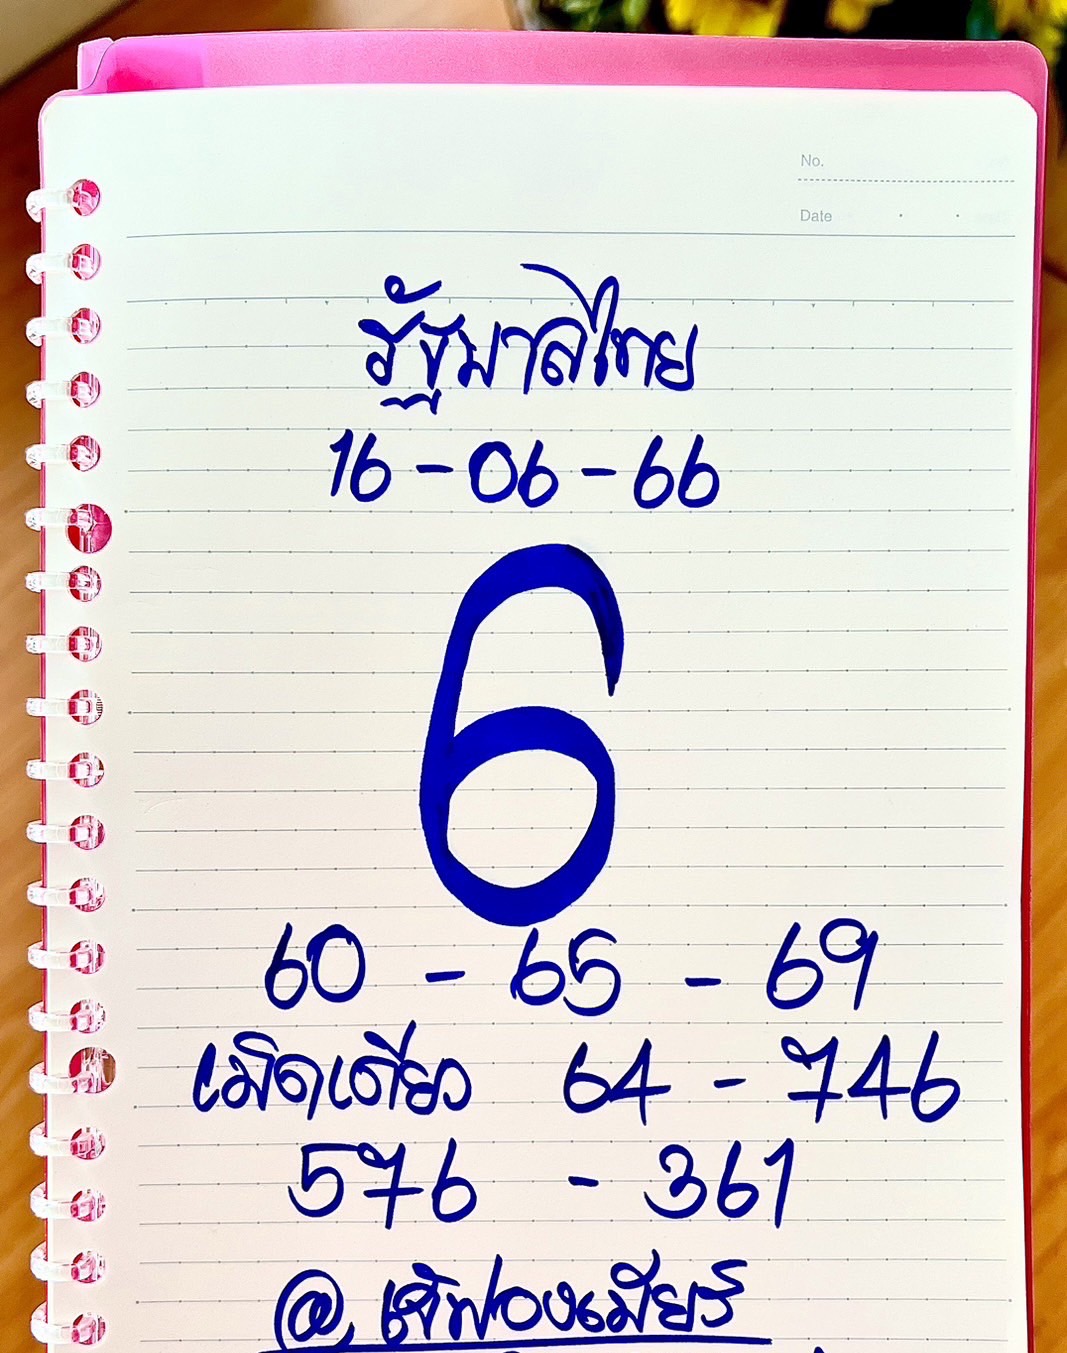 No.
Date
รัฐบาลไทย
16-06-66
6
60 - 65 - 69
เม็ดเดียว 64 - 746
576 - 361
@เจ๊ฟองเบียร์